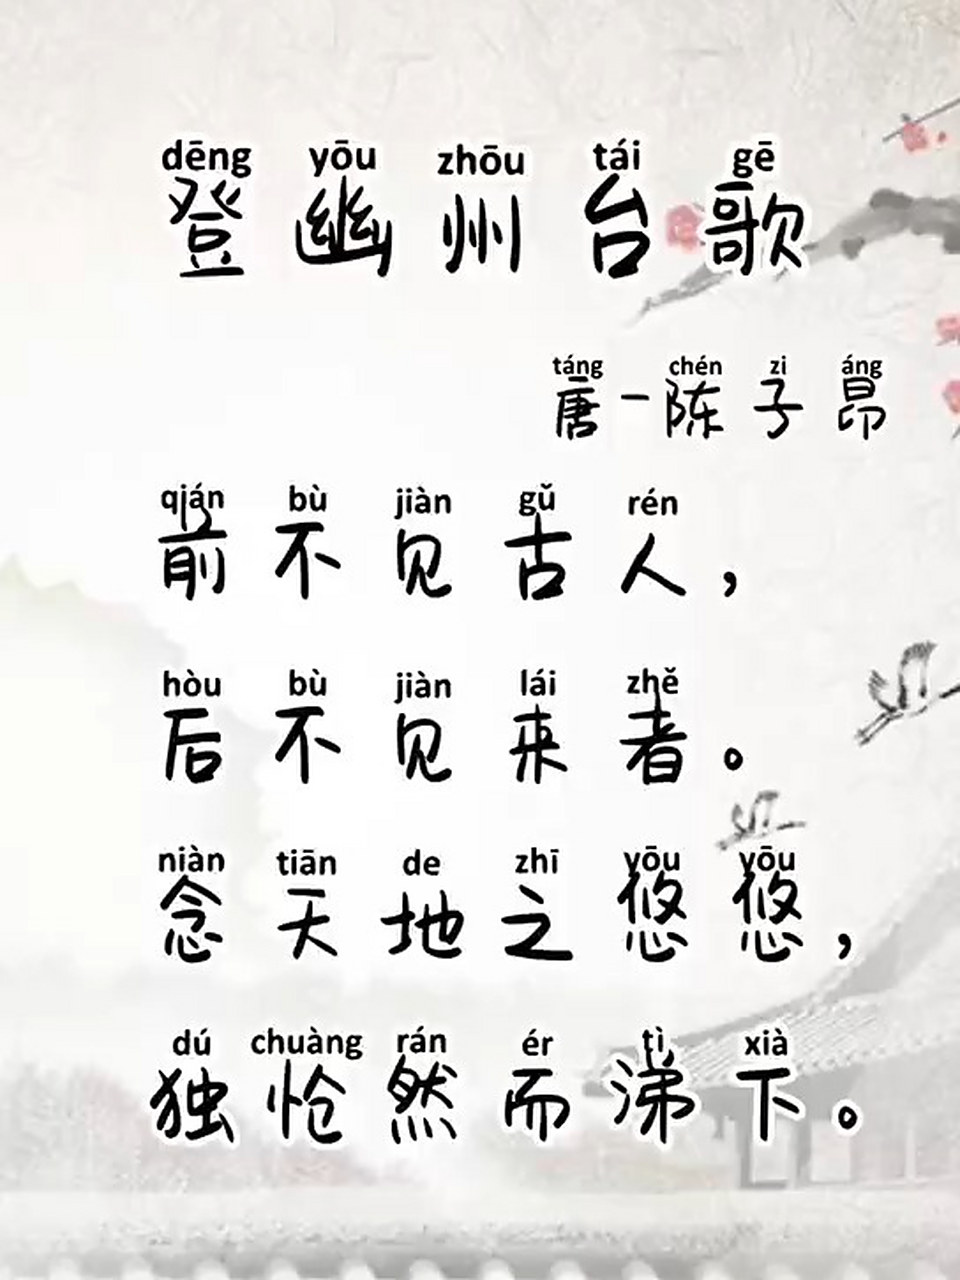 dēng yōu zhōu tái gē
登幽州台歌
táng chén zi áng
唐-陈子昂
qián bù jiàn gǔ rén
前不见古人，
hòu bù jiàn lái zhě
后不见来者。
niàn tiān de zhī yōu yōu
念天地之悠悠，
dú chuàng rán ér tì xià
独怆然而涕下。